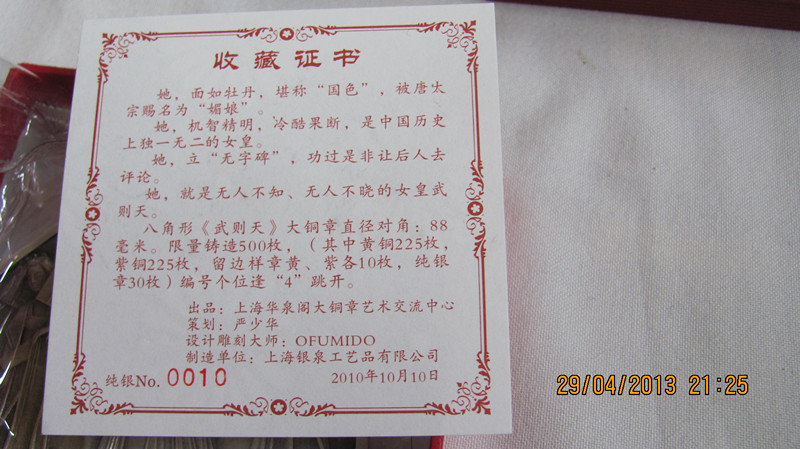 收藏证书
她，面如牡丹，堪称“国色”，被唐太
宗赐名为“媚娘”。
她，机智精明，冷酷果断，是中国历史
上独一无二的女皇。
她，立“无字碑”，功过是非让后人去
评论。
她，就是无人不知、无人不晓的女皇武
则天。
八角形《武则天》大铜章直径对角：88
毫米。限量铸造500枚，（其中黄铜225枚，
紫铜225枚，留边样章黄、紫各10枚，纯银
章30枚）编号个位逢“4”跳开。
出品：上海华泉阁大铜章艺术交流中心
策划：严少华
设计雕刻大师：OFUMIDO
制造单位：上海银泉工艺品有限公司
纯银No. 0010 2010年10月10日
29/04/2013 21:25